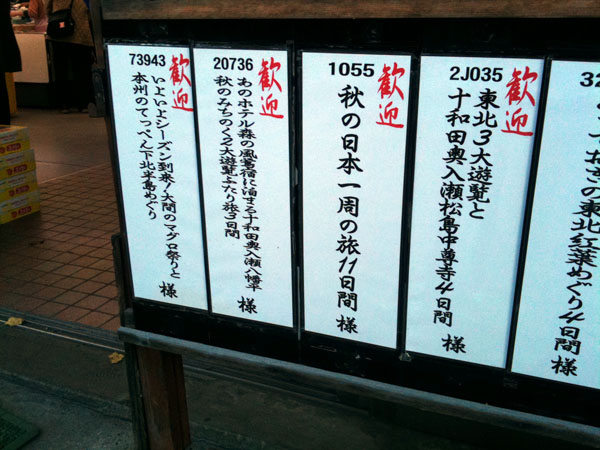 32
っておきの東北紅葉めぐり4日間
様
2J035
歓迎
東北3大遊覧と
十和田奥入瀬松島中尊寺4日間
様
1055
歓迎
秋の日本一周の旅11日間
様
20736
歓迎
あのホテル森の風鶯宿に泊まる十和田奥入瀬八幡平
秋のみちのく2大遊覧ふたり旅3日間
様
73943
歓迎
いよいよシーズン到来!大間のマグロ祭りと
本州のてっぺん下北半島めぐり
様